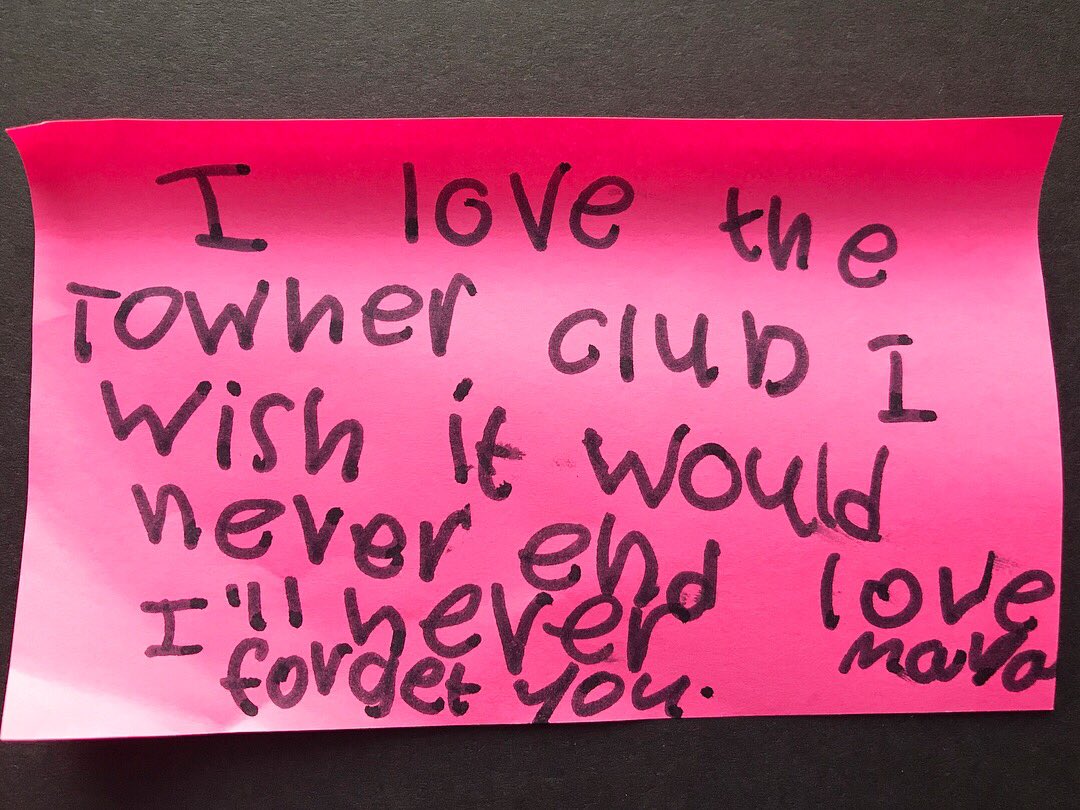 I love the
Towner club I
wish it would
never end
I'll never
forget you.
love